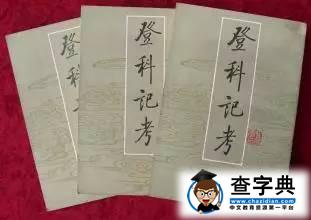 登科记考
登科记考
登科记考
查字典
www.chazidian.com
中文教育资源第一平台